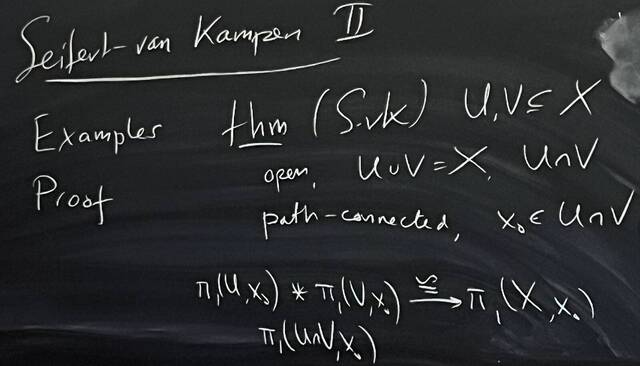 Seifert-van Kampen II
Examples thm (SvK) U,V ⊆ X
Proof open, U∪V = X, U∩V
path-connected, x₀ ∈ U∩V
π₁(U,x₀) * π₁(V,x₀) ≅→ π₁(X,x₀)
π₁(U∩V,x₀)